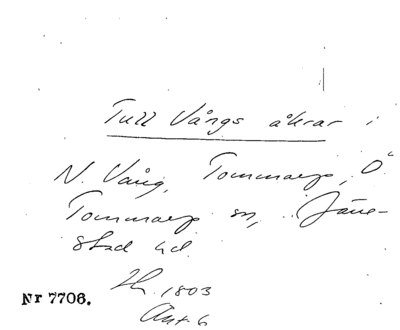 Tull Vångs åkrar i
N. Vång, Tommarp, Ö
Tommarp sn, Järre-
stad hd.
1803
Nr 7706.
Akt 6